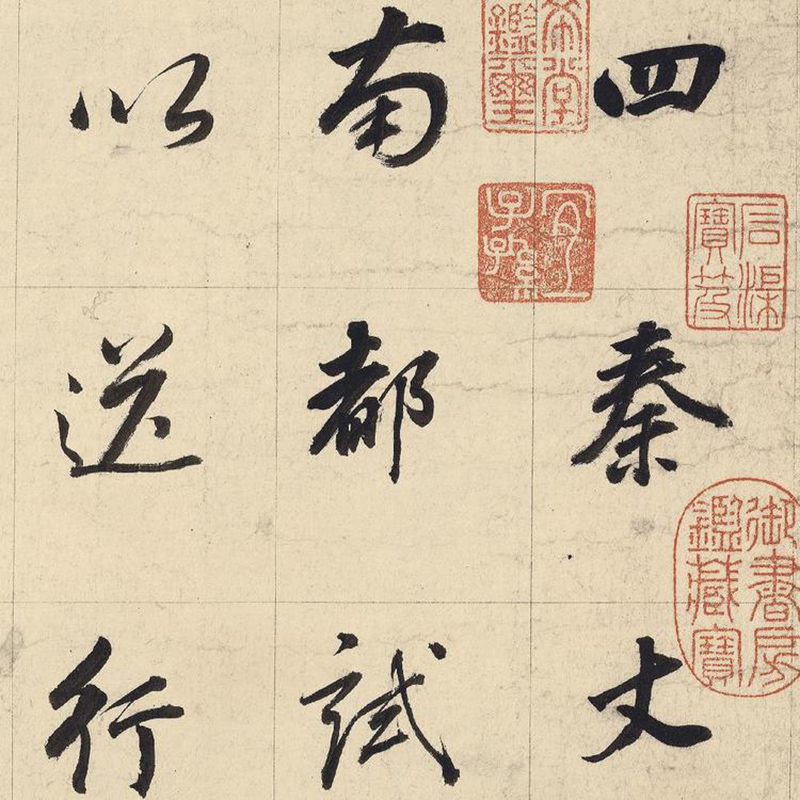 四秦丈
南都試
以送行
希堂
鑑璽
宜
子孫
石渠
寶笈
御書房
鑑藏寶